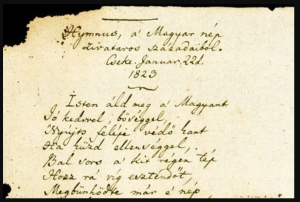 Hymnus, a' Magyar nép
zivataros századaiból.
Cseke Januar. 22d.
1823
Isten áld meg a Magyart
Jó kedvvel, bőséggel,
Nyújts feléje védő kart
Ha küzd ellenséggel,
Bal sors a kit régen tép
Hozz rá víg esztendőt,
Megbűnhődte már e nép